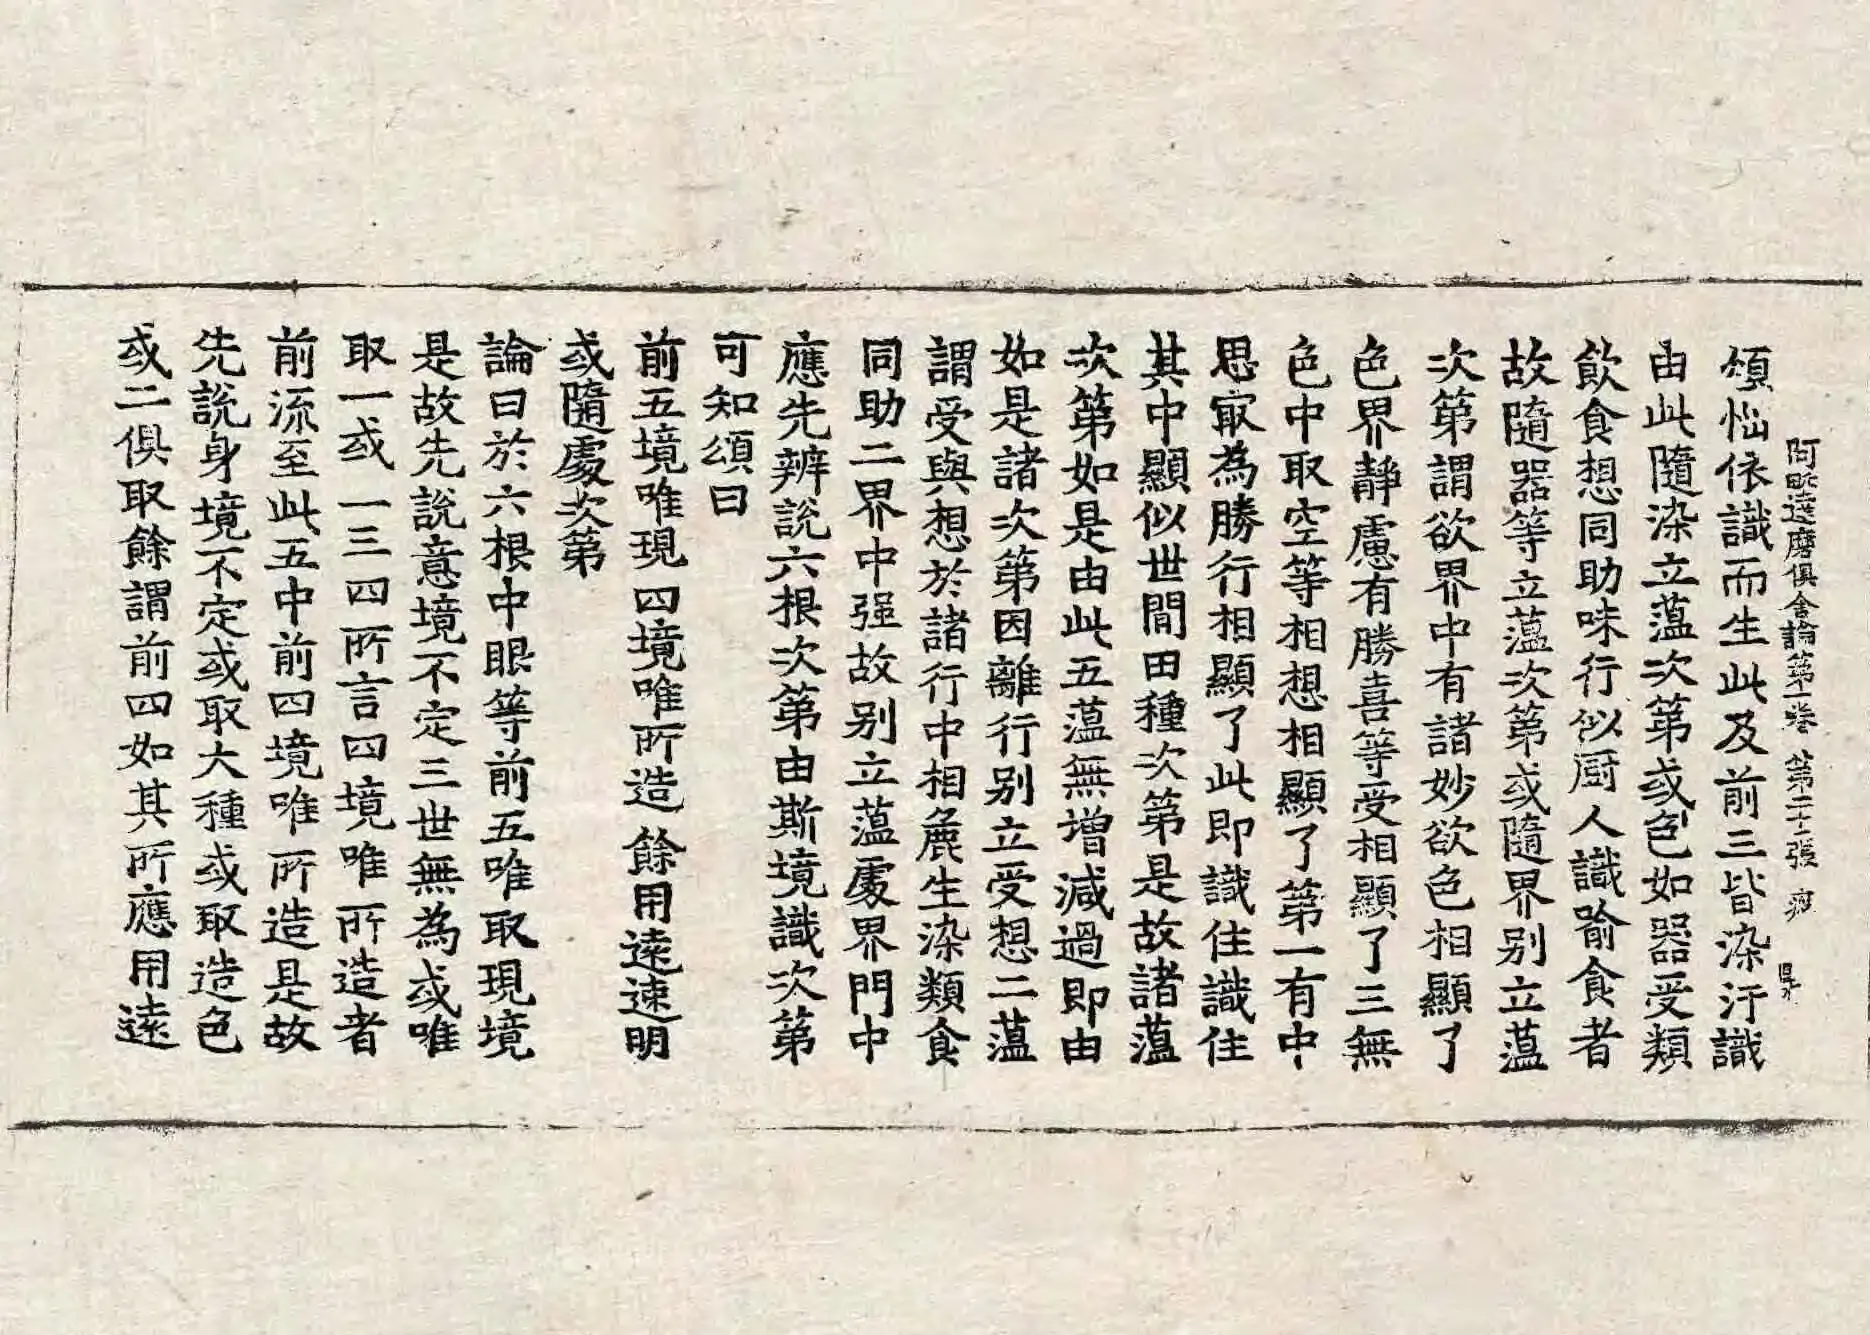 阿毗達磨俱舍論第一卷 第二十張 
煩惱依識而生此及前三皆染汙識
由此隨染立蘊次第或色如器受類
飲食想同助味行似厨人識喻食者
故隨器等立蘊次第或隨界別立蘊
次第謂欲界中有諸妙欲色相顯了
色界靜慮有勝喜等受相顯了三無
色中取空等相想相顯了第一有中
思㝡為勝行相顯了此即識住識住
其中顯似世間田種次第是故諸蘊
次第如是由此五蘊無增減過即由
如是諸次第因離行別立受想二蘊
謂受與想於諸行中相麁生染類食
同助二界中强故別立蘊處界門中
應先辨說六根次第由斯境識次第
可知頌曰
前五境唯現 四境唯所造 餘用遠速明
或隨處次第
論曰於六根中眼等前五唯取現境
是故先說意境不定三世無為或唯
取一或一三四所言四境唯所造者
前流至此五中前四境唯所造是故
先說身境不定或取大種或取造色
或二俱取餘謂前四如其所應用遠